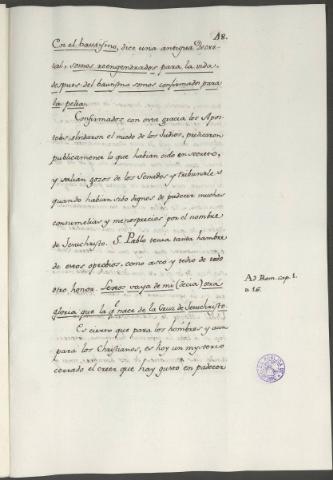 48.
Con el bautismo, dice una antigua Decre-
tal, somos reengendrados para la vida,
despues del bautismo somos confirmados para
la pelea.
Confirmados con esta gracia los Apos-
toles olvidaron el miedo de los Judios, predicaron
publicamente lo que habían oido en secreto,
y salían gozosos de los Senedos y tribunales
quando habían sido dignos de padecer muchas
contumelias y menosprecios por el nombre
de Jesuchristo. S. Pablo tenia tanta hambre
de estos oprobios, como asco y tedio de todo
otro honor. Lexos vaya de mi (decia) otra
gloria que la q.e nace de la Cruz de Jesuchristo.
Es cierto que para los hombres y aun
para los Christianos, es hoy un mysterio
cerrado el creer que hay gusto en padecer
Ad Rom. cap. 1.
v. 16.